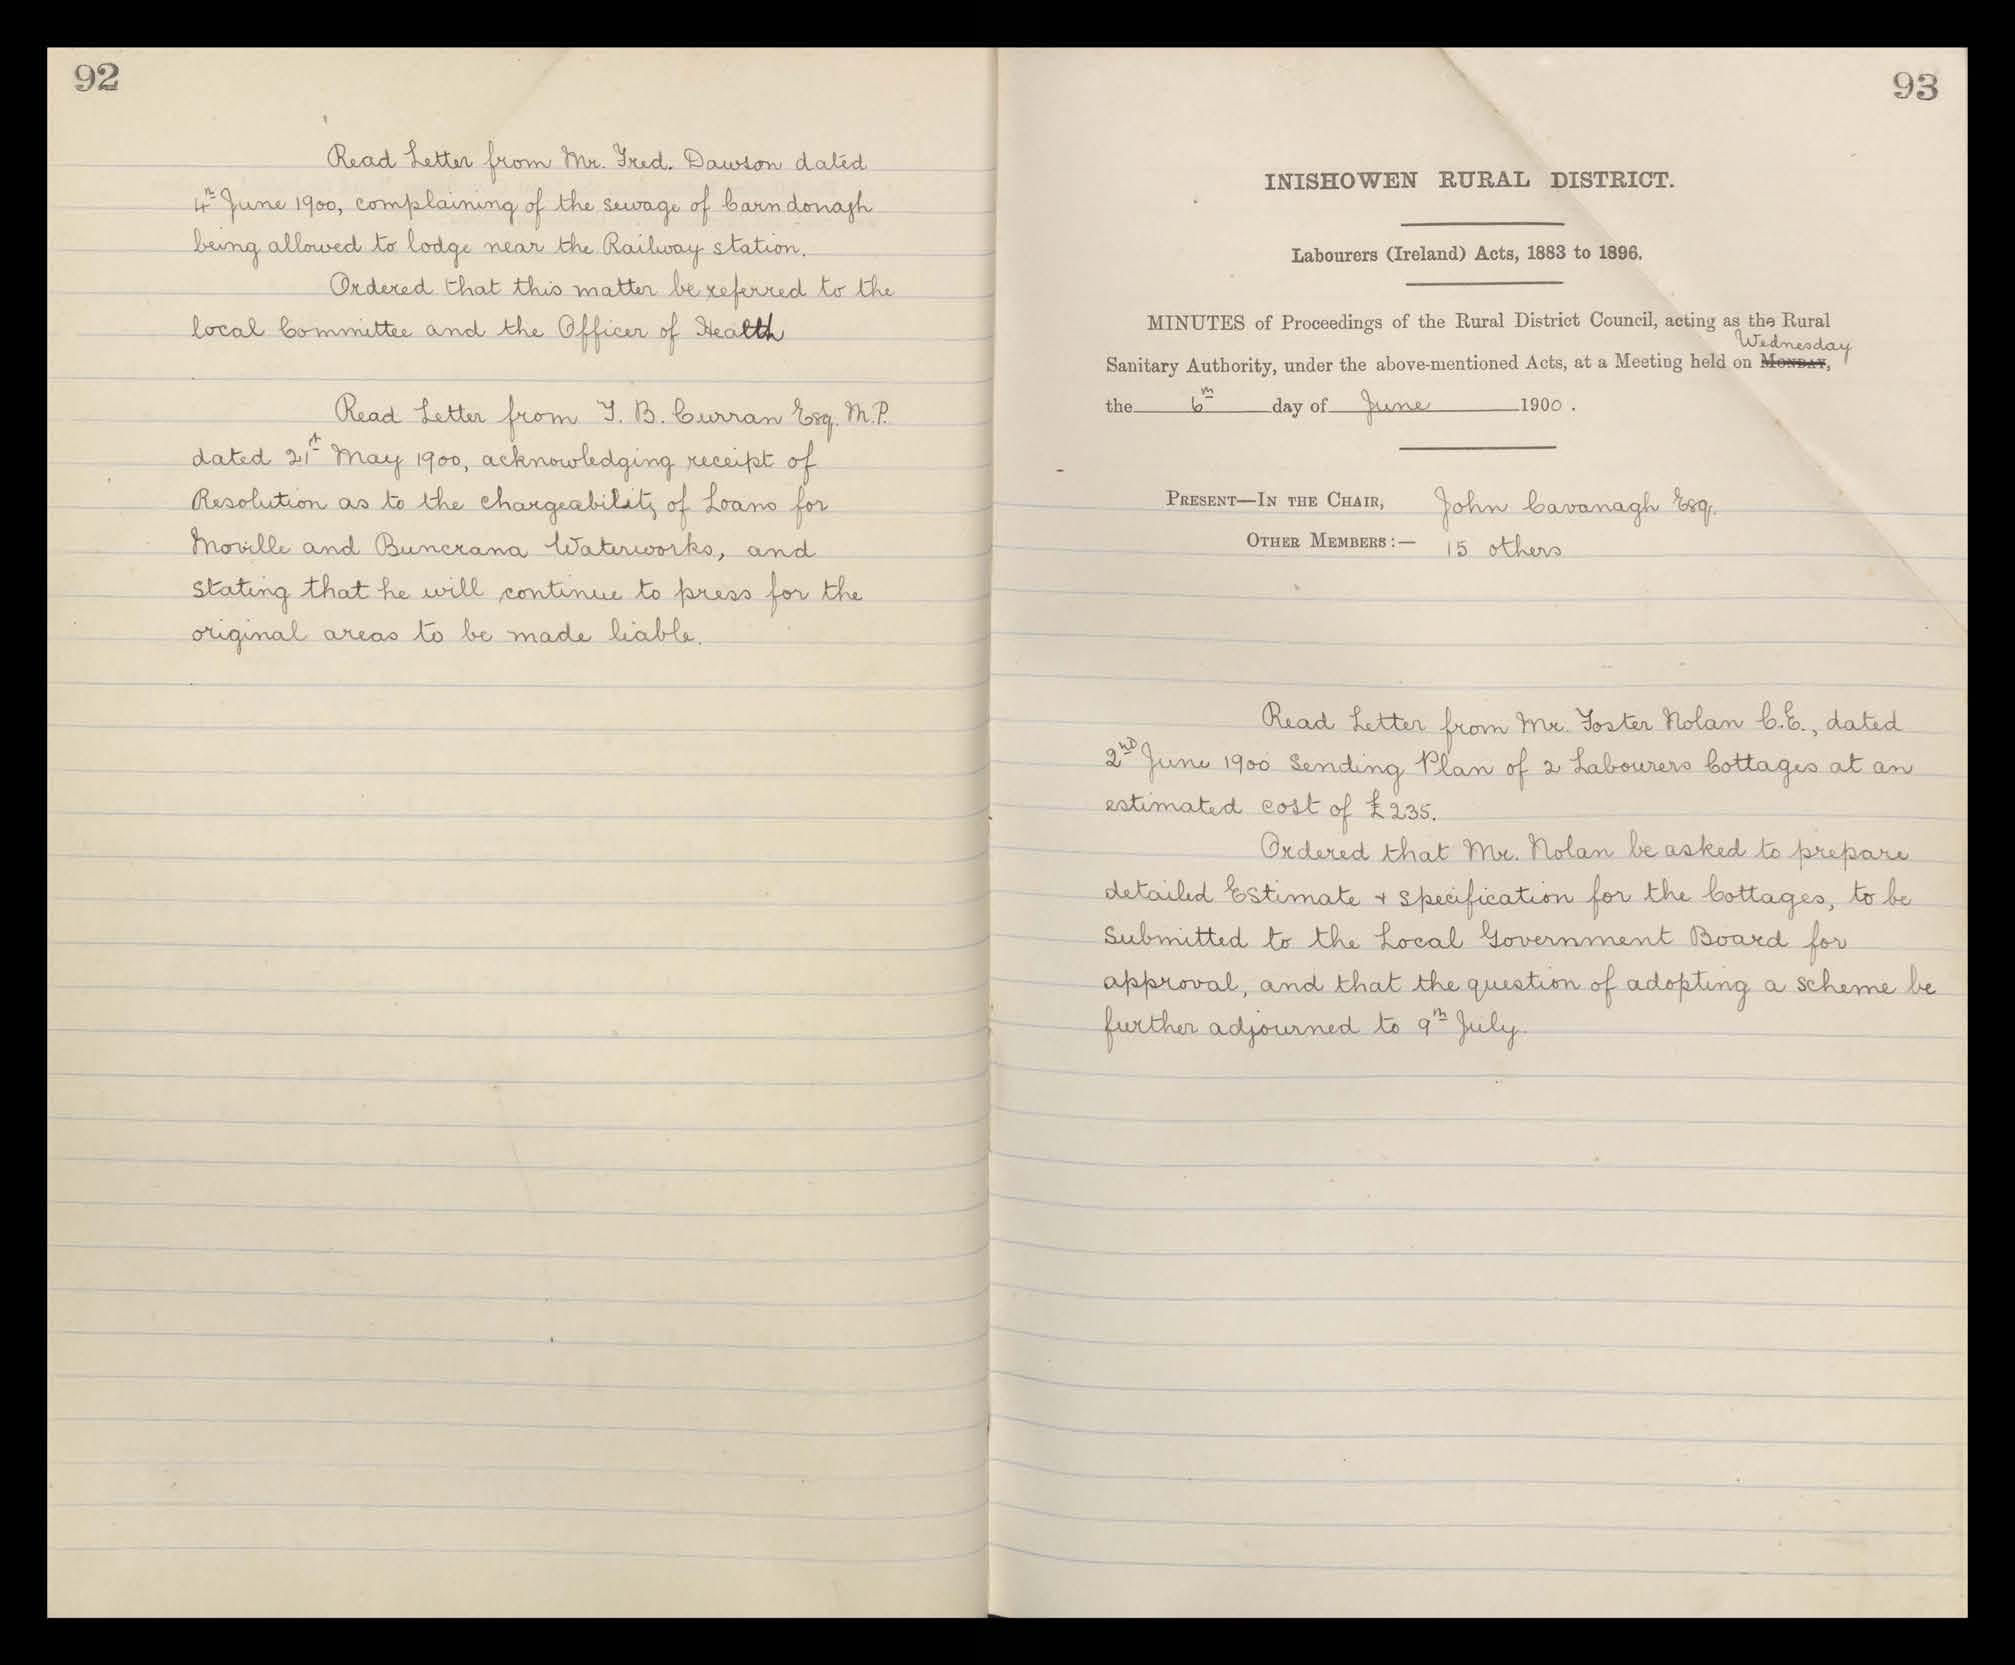 92
Read Letter from Mr. Fred. Dawson dated
4th June 1900, complaining of the sewage of Carndonagh
being allowed to lodge near the Railway station.
Ordered that this matter be referred to the
local Committee and the Officer of Health
Read Letter from T. B. Curran Esq. M.P.
dated 21st May 1900, acknowledging receipt of
Resolution as to the chargeability of Loans for
Moville and Buncrana Waterworks, and
stating that he will continue to press for the
original areas to be made liable.
93
INISHOWEN RURAL DISTRICT.
Labourers (Ireland) Acts, 1883 to 1896.
MINUTES of Proceedings of the Rural District Council, acting as the Rural
Wednesday
Sanitary Authority, under the above-mentioned Acts, at a Meeting held on MONDAY,
the 6th day of June 1900.
PRESENT—IN THE CHAIR, John Cavanagh Esq.
OTHER MEMBERS:— 15 others
Read Letter from Mr. Foster Nolan C.E., dated
2nd June 1900 sending Plan of 2 Labourers Cottages at an
estimated cost of £235.
Ordered that Mr. Nolan be asked to prepare
detailed Estimate & specification for the Cottages, to be
submitted to the Local Government Board for
approval, and that the question of adopting a scheme be
further adjourned to 9th July.